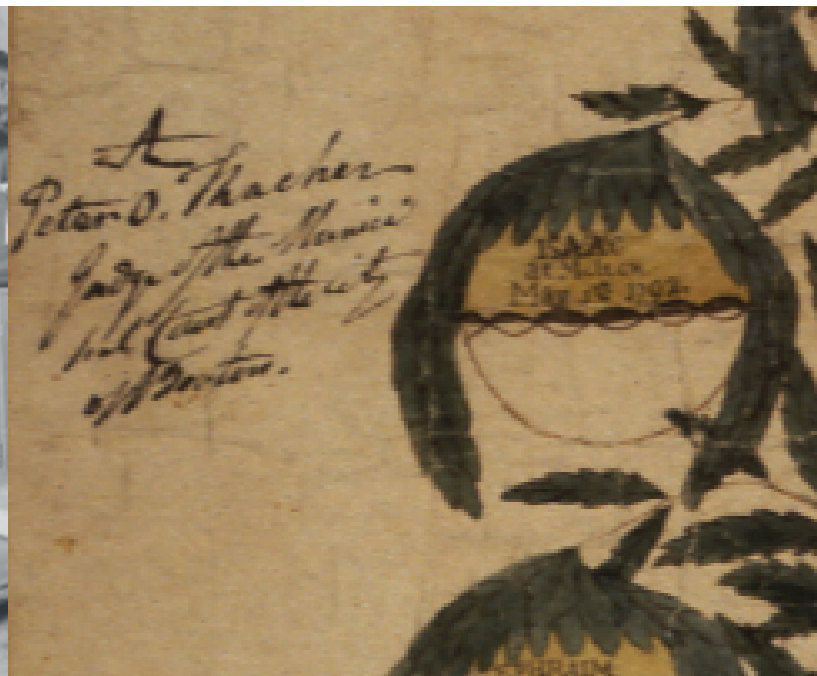 A
Peter O. Thacher
Judge of the Munici
pal Court of the city
of Boston.
ISAAC
May 1792
EPHRAIM